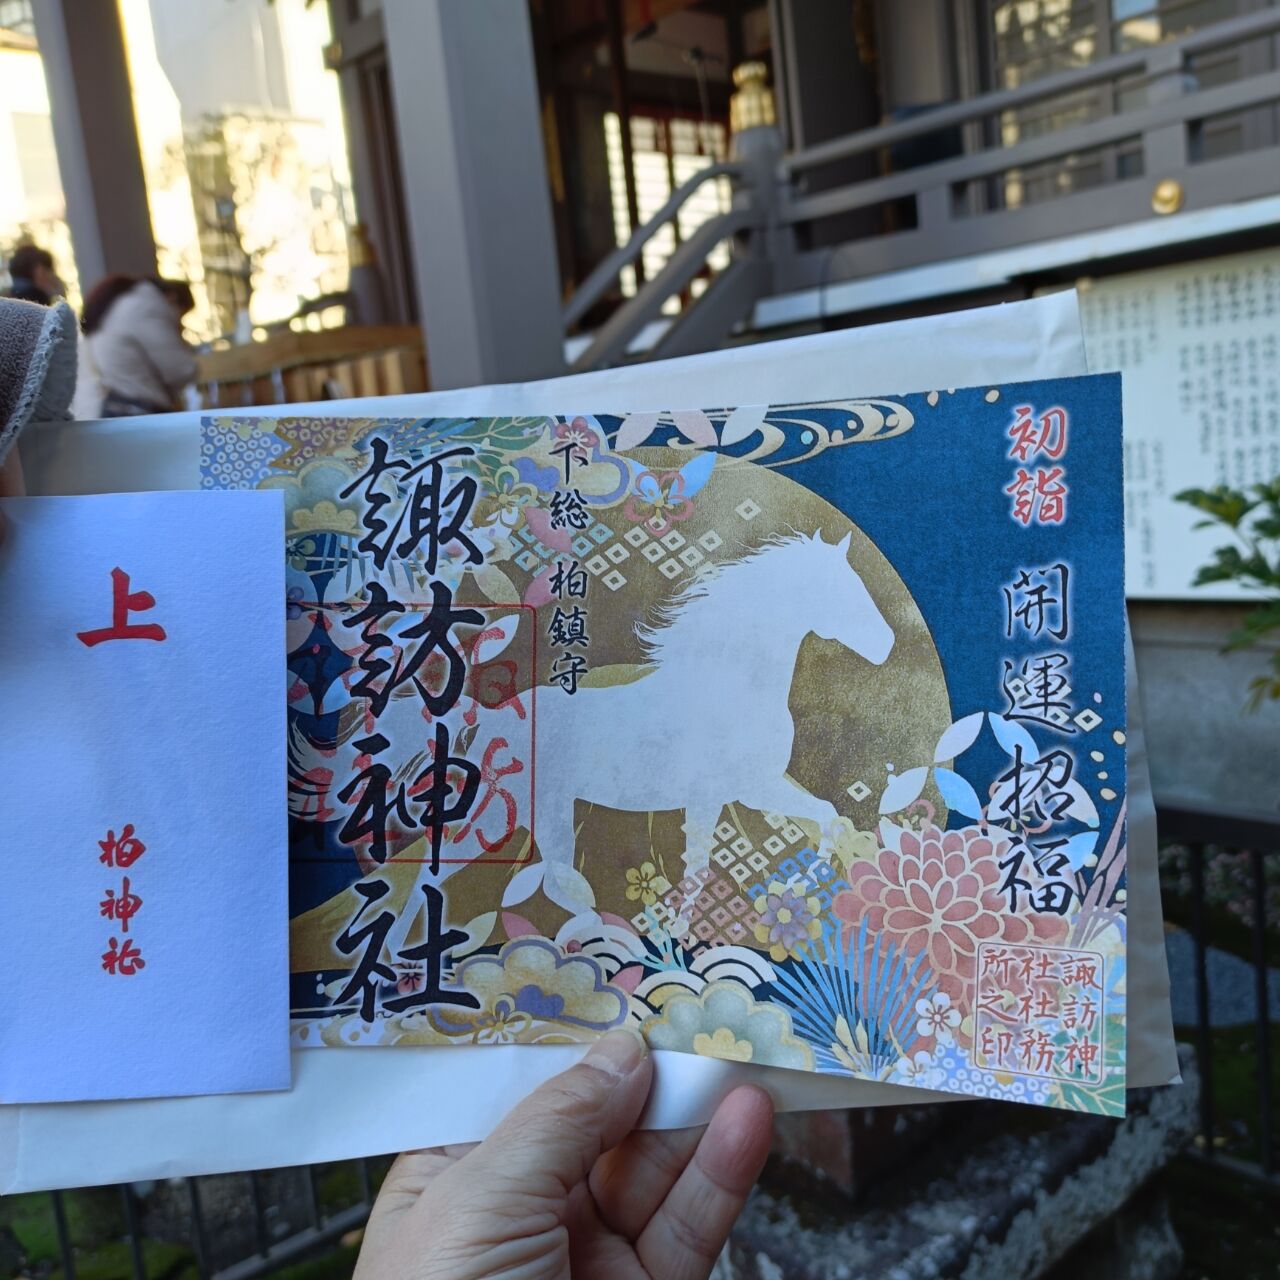 初詣 開運招福
諏訪神
社社務
所之印
下総 柏鎮守
諏訪神社
上
柏神社